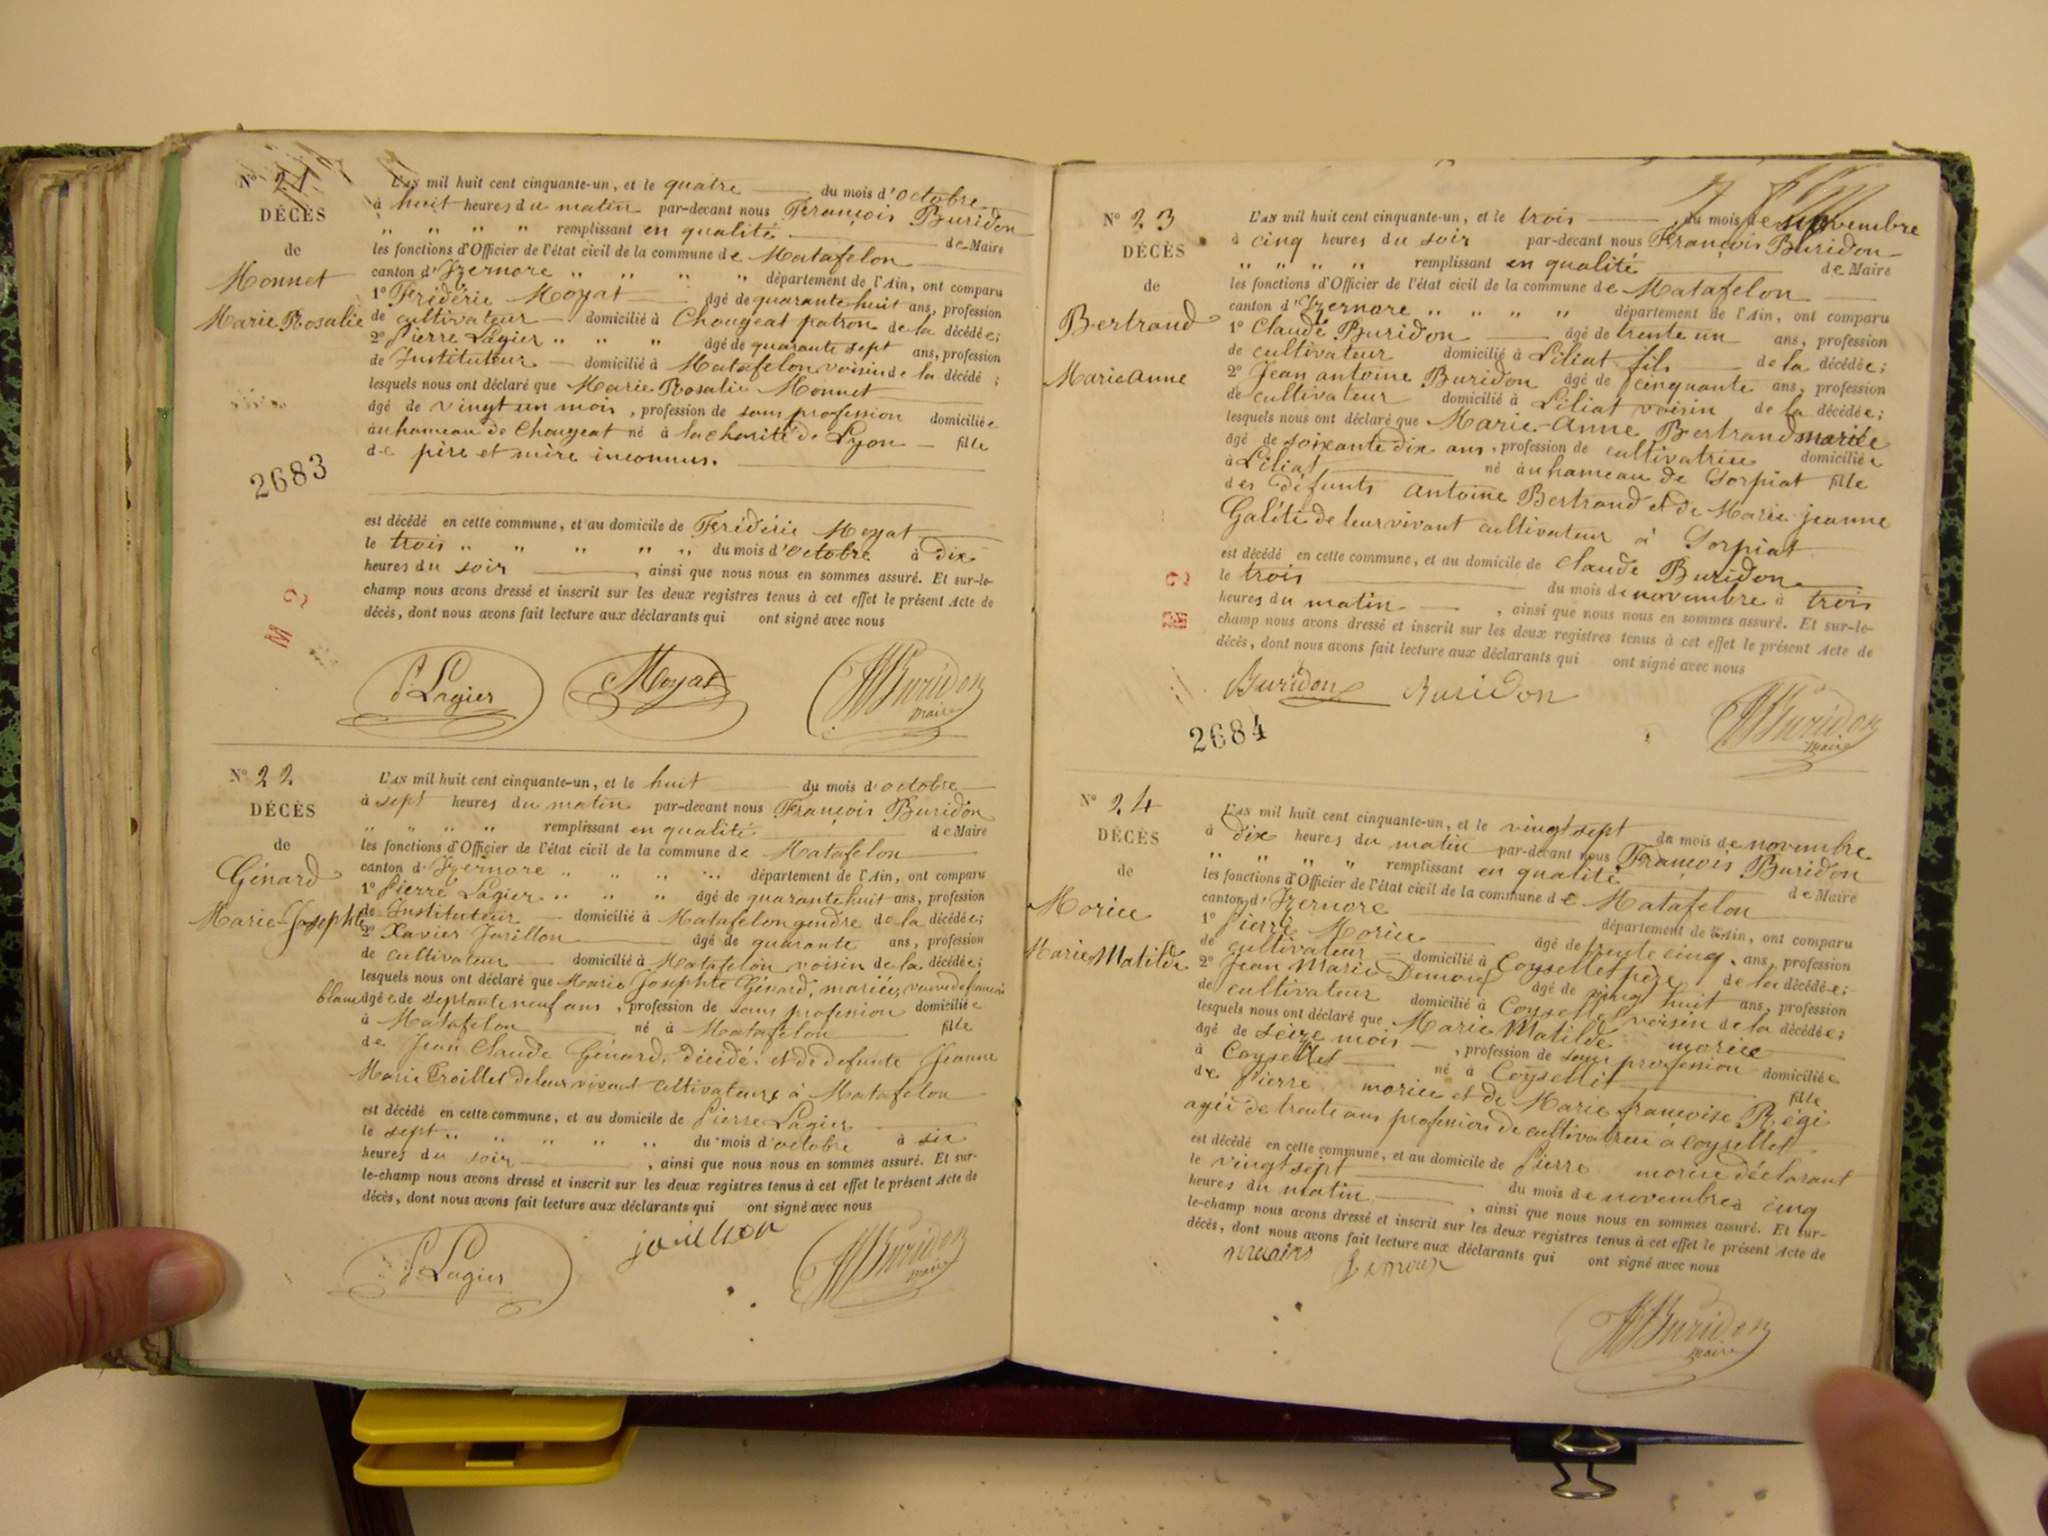 N° 21
DÉCÈS
de
Monnet
Marie Rosalie
2683
L'AN mil huit cent cinquante-un, et le quatre du mois d'octobre
à huit heures du matin par-devant nous François Buridon
" " " " remplissant en qualité de Maire
les fonctions d'Officier de l'état civil de la commune de Matafelon
canton d'Izernore " " " " département de l'Ain, ont comparu
1° Frédéric Moyat âgé de quarante huit ans, profession
de cultivateur domicilié à Chougeat patron de la décédée;
2° Pierre Lagier " " " âgé de quarante sept ans, profession
de Instituteur domicilié à Matafelon voisin de la décédé ;
lesquels nous ont déclaré que Marie Rosalie Monnet
âgé de vingt un mois , profession de sans profession domiciliée
au hameau de Chougeat né à la charité de Lyon fille
de père et mère inconnus.
est décédé en cette commune, et au domicile de Frédéric Moyat
le trois " " " " " du mois d'octobre à dix
heures du soir , ainsi que nous nous en sommes assuré. Et sur-le-
champ nous avons dressé et inscrit sur les deux registres tenus à cet effet le présent Acte de
décès, dont nous avons fait lecture aux déclarants qui ont signé avec nous
P. Lagier Moyat Buridon
maire
N° 22
DÉCÈS
de
Génard
Marie-Josephte
L'AN mil huit cent cinquante-un, et le huit du mois d'octobre
à sept heures du matin par-devant nous François Buridon
" " " " remplissant en qualité de Maire
les fonctions d'Officier de l'état civil de la commune de Matafelon
canton d'Izernore " " " " département de l'Ain, ont comparu
1° Pierre Lagier " " " âgé de quarante huit ans, profession
de Instituteur domicilié à Matafelon gendre de la décédée;
2° Xavier Jurillon âgé de quarante ans, profession
de cultivateur domicilié à Matafelon voisin de la décédée;
lesquels nous ont déclaré que Marie Josephte Génard, mariée, veuve de francois
blanc âgée de septante neuf ans , profession de sans profession domiciliée
à Matafelon né à Matafelon fille
de Jean Claude Génard, décédé, et de defunte Jeanne
Marie Troillet de leur vivant cultivateurs à Matafelon
est décédé en cette commune, et au domicile de Pierre Lagier
le sept " " " " " du mois d'octobre à six
heures du soir , ainsi que nous nous en sommes assuré. Et sur-
le-champ nous avons dressé et inscrit sur les deux registres tenus à cet effet le présent Acte de
décès, dont nous avons fait lecture aux déclarants qui ont signé avec nous
P. Lagier Buridon
maire
N° 23
DÉCÈS
de
Bertrand
Marie anne
2684
L'AN mil huit cent cinquante-un, et le trois du mois de novembre
à cinq heures du soir par-devant nous François Buridon
" " " " remplissant en qualité de Maire
les fonctions d'Officier de l'état civil de la commune de Matafelon
canton d'Izernore " " " " département de l'Ain, ont comparu
1° Claude Buridon âgé de trente un ans, profession
de cultivateur domicilié à Liliat fils de la décédée;
2° Jean antoine Buridon âgé de cinquante ans, profession
de cultivateur domicilié à Liliat voisin de la décédée;
lesquels nous ont déclaré que Marie-Anne Bertrand mariée
âgé de soixante dix ans , profession de cultivatrice domiciliée
à Liliat né au hameau de Corpiat fille
des défunts Antoine Bertrand et de Marie jeanne
Galéti de leur vivant cultivateur à Corpiat
est décédé en cette commune, et au domicile de Claude Buridon
le trois du mois de novembre à trois
heures du matin , ainsi que nous nous en sommes assuré. Et sur-le-
champ nous avons dressé et inscrit sur les deux registres tenus à cet effet le présent Acte de
décès, dont nous avons fait lecture aux déclarants qui ont signé avec nous
Buridon Buridon Buridon
maire
N° 24
DÉCÈS
de
Morice
Marie Matilde
L'AN mil huit cent cinquante-un, et le vingt sept du mois de novembre
à dix heures du matin par-devant nous François Buridon
" " " " remplissant en qualité de Maire
les fonctions d'Officier de l'état civil de la commune de Matafelon
canton d'Izernore département de l'Ain, ont comparu
1° Pierre Morice âgé de trente cinq ans, profession
de cultivateur domicilié à Coyselet père de la décédée;
2° Jean Marie âgé de huit ans, profession
de cultivateur domicilié à Coyselet voisin de la décédée;
lesquels nous ont déclaré que Marie Matilde morice
âgé de seize mois , profession de sans profession domiciliée
à Coyselet né à Coyselet fille
de Pierre morice et de Marie françoise Régi
agée de trente ans profession de cultivatrice à Coyselet
est décédé en cette commune, et au domicile de Pierre morice déclarant
le vingt sept du mois de novembre à cinq
heures du matin , ainsi que nous nous en sommes assuré. Et sur-
le-champ nous avons dressé et inscrit sur les deux registres tenus à cet effet le présent Acte de
décès, dont nous avons fait lecture aux déclarants qui ont signé avec nous
Buridon
maire